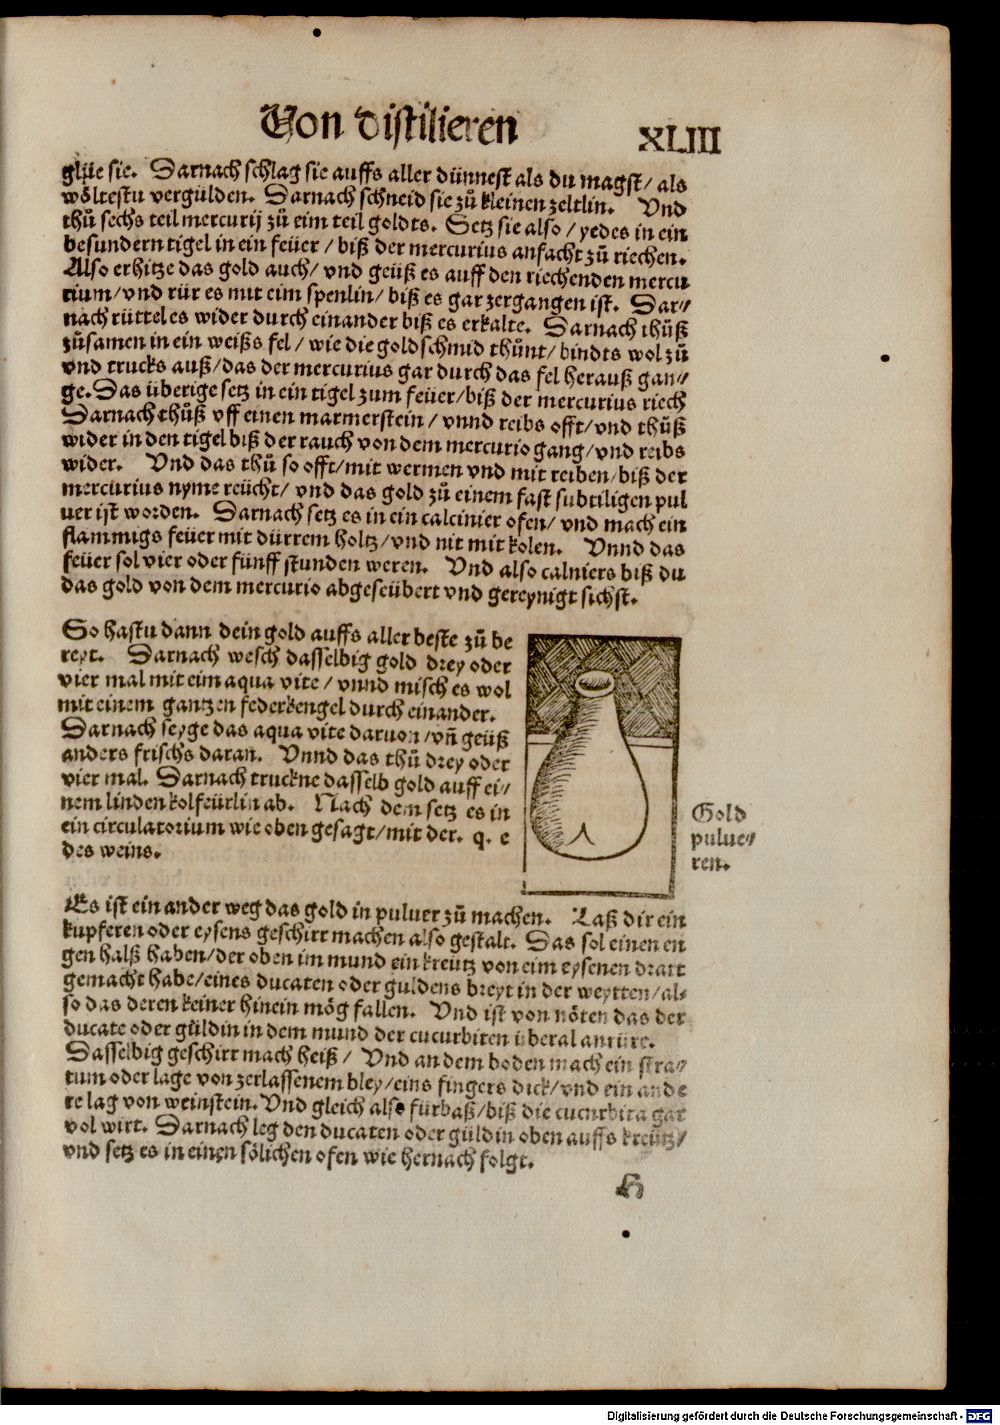 Von distilieren
XLIII
glüe sie. Darnach schlag sie auffs aller dünnest als du magst/ als
wöltestu vergülden. Darnach schneid sie zů kleinen zeltlin. Vnd
thů sechs teil mercurij zů eim teil goldts. Setz sie also / yedes in ein
besundern tigel in ein feüer / biß der mercurius anfacht zů riechen.
Also erhitze das gold auch/ vnd geüß es auff den riechenden mercu
rium/vnd rür es mit eim spenlin/ biß es gar zergangen ist. Dar⸗
nach rüttel es wider durch einander biß es erkalte. Darnach thůß
zůsamen in ein weißs fel / wie die goldschmid thůnt/ bindts wol zů
vnd trucks auß/das der mercurius gar durch das fel herauß gan⸗
ge. Das überige setz in ein tigel zum feüer/biß der mercurius riech
Darnach thůß vff einen marmerstein / vnnd reibs offt/vnd thůß
wider in den tigel biß der rauch von dem mercurio gang/vnd reibs
wider. Vnd das thů so offt/mit wermen vnd mit reiben/biß der
mercurius nyme reücht/ vnd das gold zů einem fast subtiligen pul
uer ist worden. Darnach setz es in ein calcinier ofen/ vnd mach ein
flammigs feüer mit dürrem holtz/vnd nit mit kolen. Vnnd das
feüer sol vier oder fünff stunden weren. Vnd also calniers biß du
das gold von dem mercurio abgeseübert vnd gereynigt sichst.
So hastu dann dein gold auffs aller beste zů be
reyt. Darnach wesch dasselbig gold drey oder
vier mal mit eim aqua vite / vnnd misch es wol
mit einem gantzen federkengel durch einander.
Darnach seyge das aqua vite daruon/vñ geüß
anders frischs daran. Vnnd das thů drey oder
vier mal. Darnach truckne dasselb gold auff ei⸗
nem linden kolfeürlin ab. Nach dem setz es in
ein circulatorium wie oben gesagt/mit der. q. e
des weins.
Gold
pulue⸗
ren.
Es ist ein ander weg das gold in puluer zů machen. Laß dir ein
kupferen oder eysens geschirr machen also gestalt. Das sol einen en
gen halß haben/der oben im mund ein kreütz von eim eysenen dratt
gemacht habe/eines ducaten oder guldens breyt in der weytten/al⸗
so das deren keiner hinein mög fallen. Vnd ist von nöten das der
ducate oder güldin in dem mund der cucurbiten überal anrüre.
Dasselbig geschirr mach heiß / Vnd an dem boden mach ein stra⸗
tum oder lage von zerlassenem bley/eins fingers dick/vnd ein ande
re lag von weinstein. Vnd gleich also fürbaß/biß die cucurbita gar
vol wirt. Darnach leg den ducaten oder güldin oben auffs kreütz/
vnd setz es in einen sölichen ofen wie hernach folgt.
H
Digitalisierung gefördert durch die Deutsche Forschungsgemeinschaft - DFG